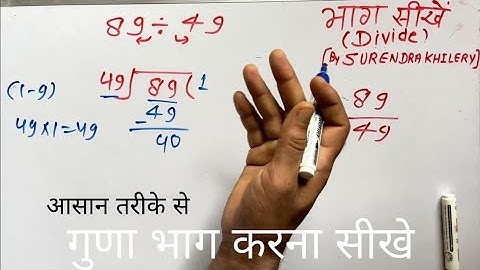 89 ÷ 49
भाग सीखें
(Divide)
[By SURENDRA KHILERY]
(1-9)
49 × 1 = 49
49) 89 ( 1
- 49
40
89
49
आसान तरीके से
गुणा भाग करना सीखे